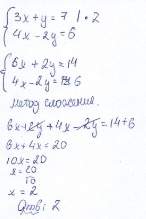 3x + y = 7 | · 2
4x - 2y = 6
6x + 2y = 14
4x - 2y = 6
метод сложения.
6x + 2y + 4x - 2y = 14 + 6
6x + 4x = 20
10x = 20
x = 20
10
x = 2
Ответ: 2